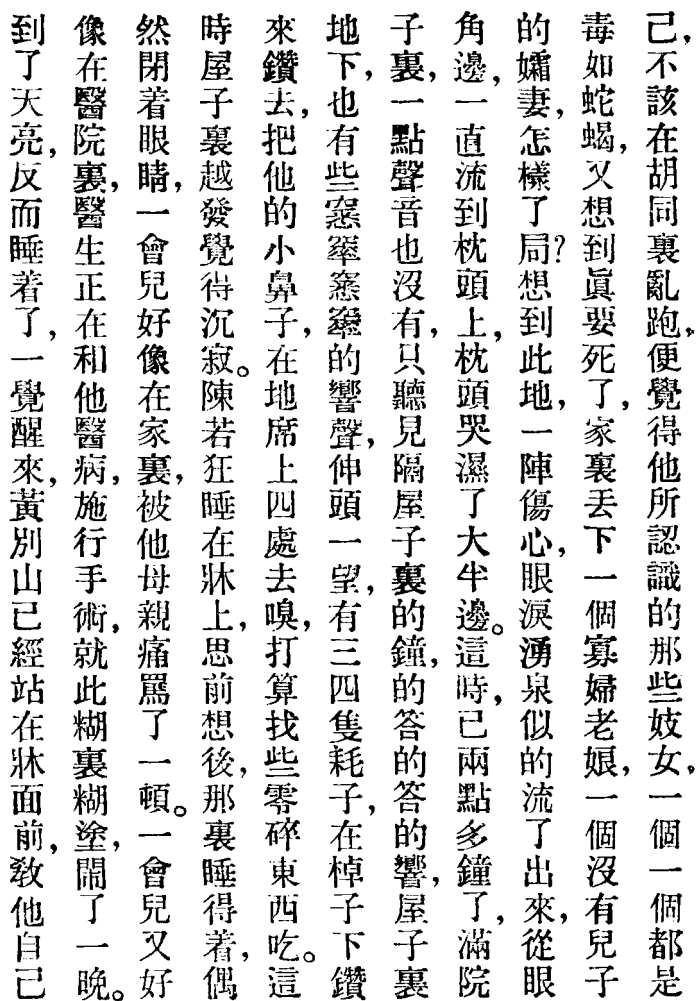 己，不該在胡同裏亂跑，便覺得他所認識的那些妓女，一個一個都是
毒如蛇蝎，又想到眞要死了，家裏丟下一個寡婦老娘，一個沒有兒子
的孀妻，怎樣了局？想到此地，一陣傷心，眼淚湧泉似的流了出來，從眼
角邊，一直流到枕頭上，枕頭哭濕了大半邊。這時，已兩點多鐘了，滿院
子裏，一點聲音也沒有，只聽見隔屋子裏的鐘，的答的答的響，屋子裏
地下，也有些窸窣窸窣的響聲，伸頭一望，有三四隻耗子，在棹子下鑽
來鑽去，把他的小鼻子，在地席上四處去嗅，打算找些零碎東西吃。這
時屋子裏越發覺得沉寂。陳若狂睡在牀上，思前想後，那裏睡得着，偶
然閉着眼睛，一會兒好像在家裏，被他母親痛罵了一頓。一會兒又好
像在醫院裏，醫生正在和他醫病，施行手術，就此糊裏糊塗，鬧了一晚。
到了天亮，反而睡着了，一覺醒來，黃別山已經站在牀面前，敎他自己